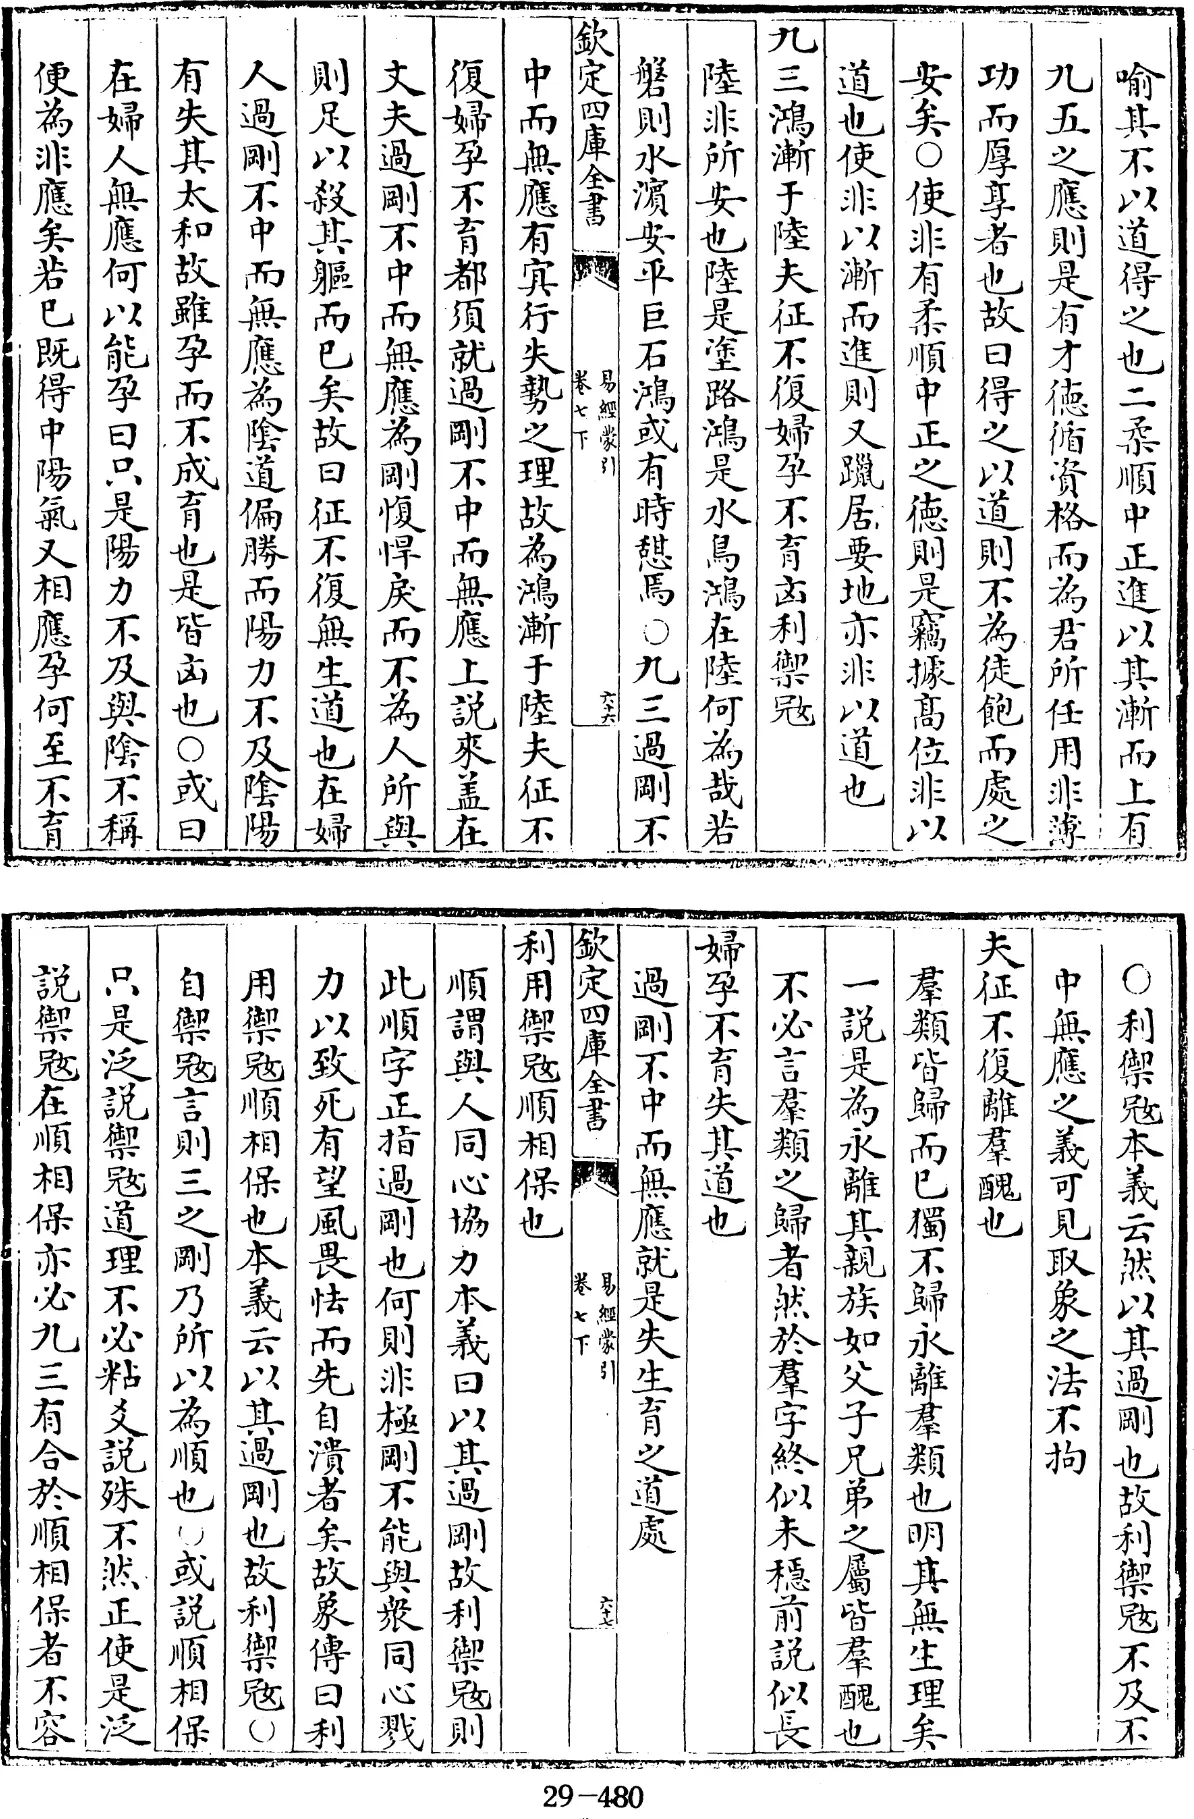 喻其不以道得之也二柔順中正進以其漸而上有
九五之應則是有才徳循資格而為君所任用非薄
功而厚享者也故曰得之以道則不為徒飽而處之
安矣○使非有柔順中正之徳則是竊據髙位非以
道也使非以漸而進則又躐居要地亦非以道也
九三鴻漸于陸夫征不復婦孕不育凶利禦冦
陸非所安也陸是塗路鴻是水鳥鴻在陸何為哉若
磐則水濱安平巨石鴻或有時憩焉○九三過剛不
欽定四庫全書
易經蒙引
卷七下
六十六
中而無應有寡行失勢之理故為鴻漸于陸夫征不
復婦孕不育都須就過剛不中而無應上說來蓋在
丈夫過剛不中而無應為剛愎悍戾而不為人所與
則足以殺其軀而已矣故曰征不復無生道也在婦
人過剛不中而無應為陰道偏勝而陽力不及陰陽
有失其太和故雖孕而不成育也是皆凶也○或曰
在婦人無應何以能孕曰只是陽力不及與陰不稱
便為非應矣若已既得中陽氣又相應孕何至不育
○利禦冦本義云然以其過剛也故利禦冦不及不
中無應之義可見取象之法不拘
夫征不復離羣醜也
羣類皆歸而已獨不歸永離羣類也明其無生理矣
一說是為永離其親族如父子兄弟之屬皆羣醜也
不必言羣類之歸者然於羣字終似未穩前説似長
婦孕不育失其道也
過剛不中而無應就是失生育之道處
欽定四庫全書
易經蒙引
卷七下
六十七
利用禦冦順相保也
順謂與人同心協力本義曰以其過剛故利禦冦則
此順字正指過剛也何則非極剛不能與衆同心戮
力以致死有望風畏怯而先自潰者矣故象傳曰利
用禦冦順相保也本義云以其過剛也故利禦冦○
自禦冦言則三之剛乃所以為順也○或説順相保
只是泛説禦冦道理不必粘爻説殊不然正使是泛
説禦冦在順相保亦必九三有合於順相保者不容
29-480